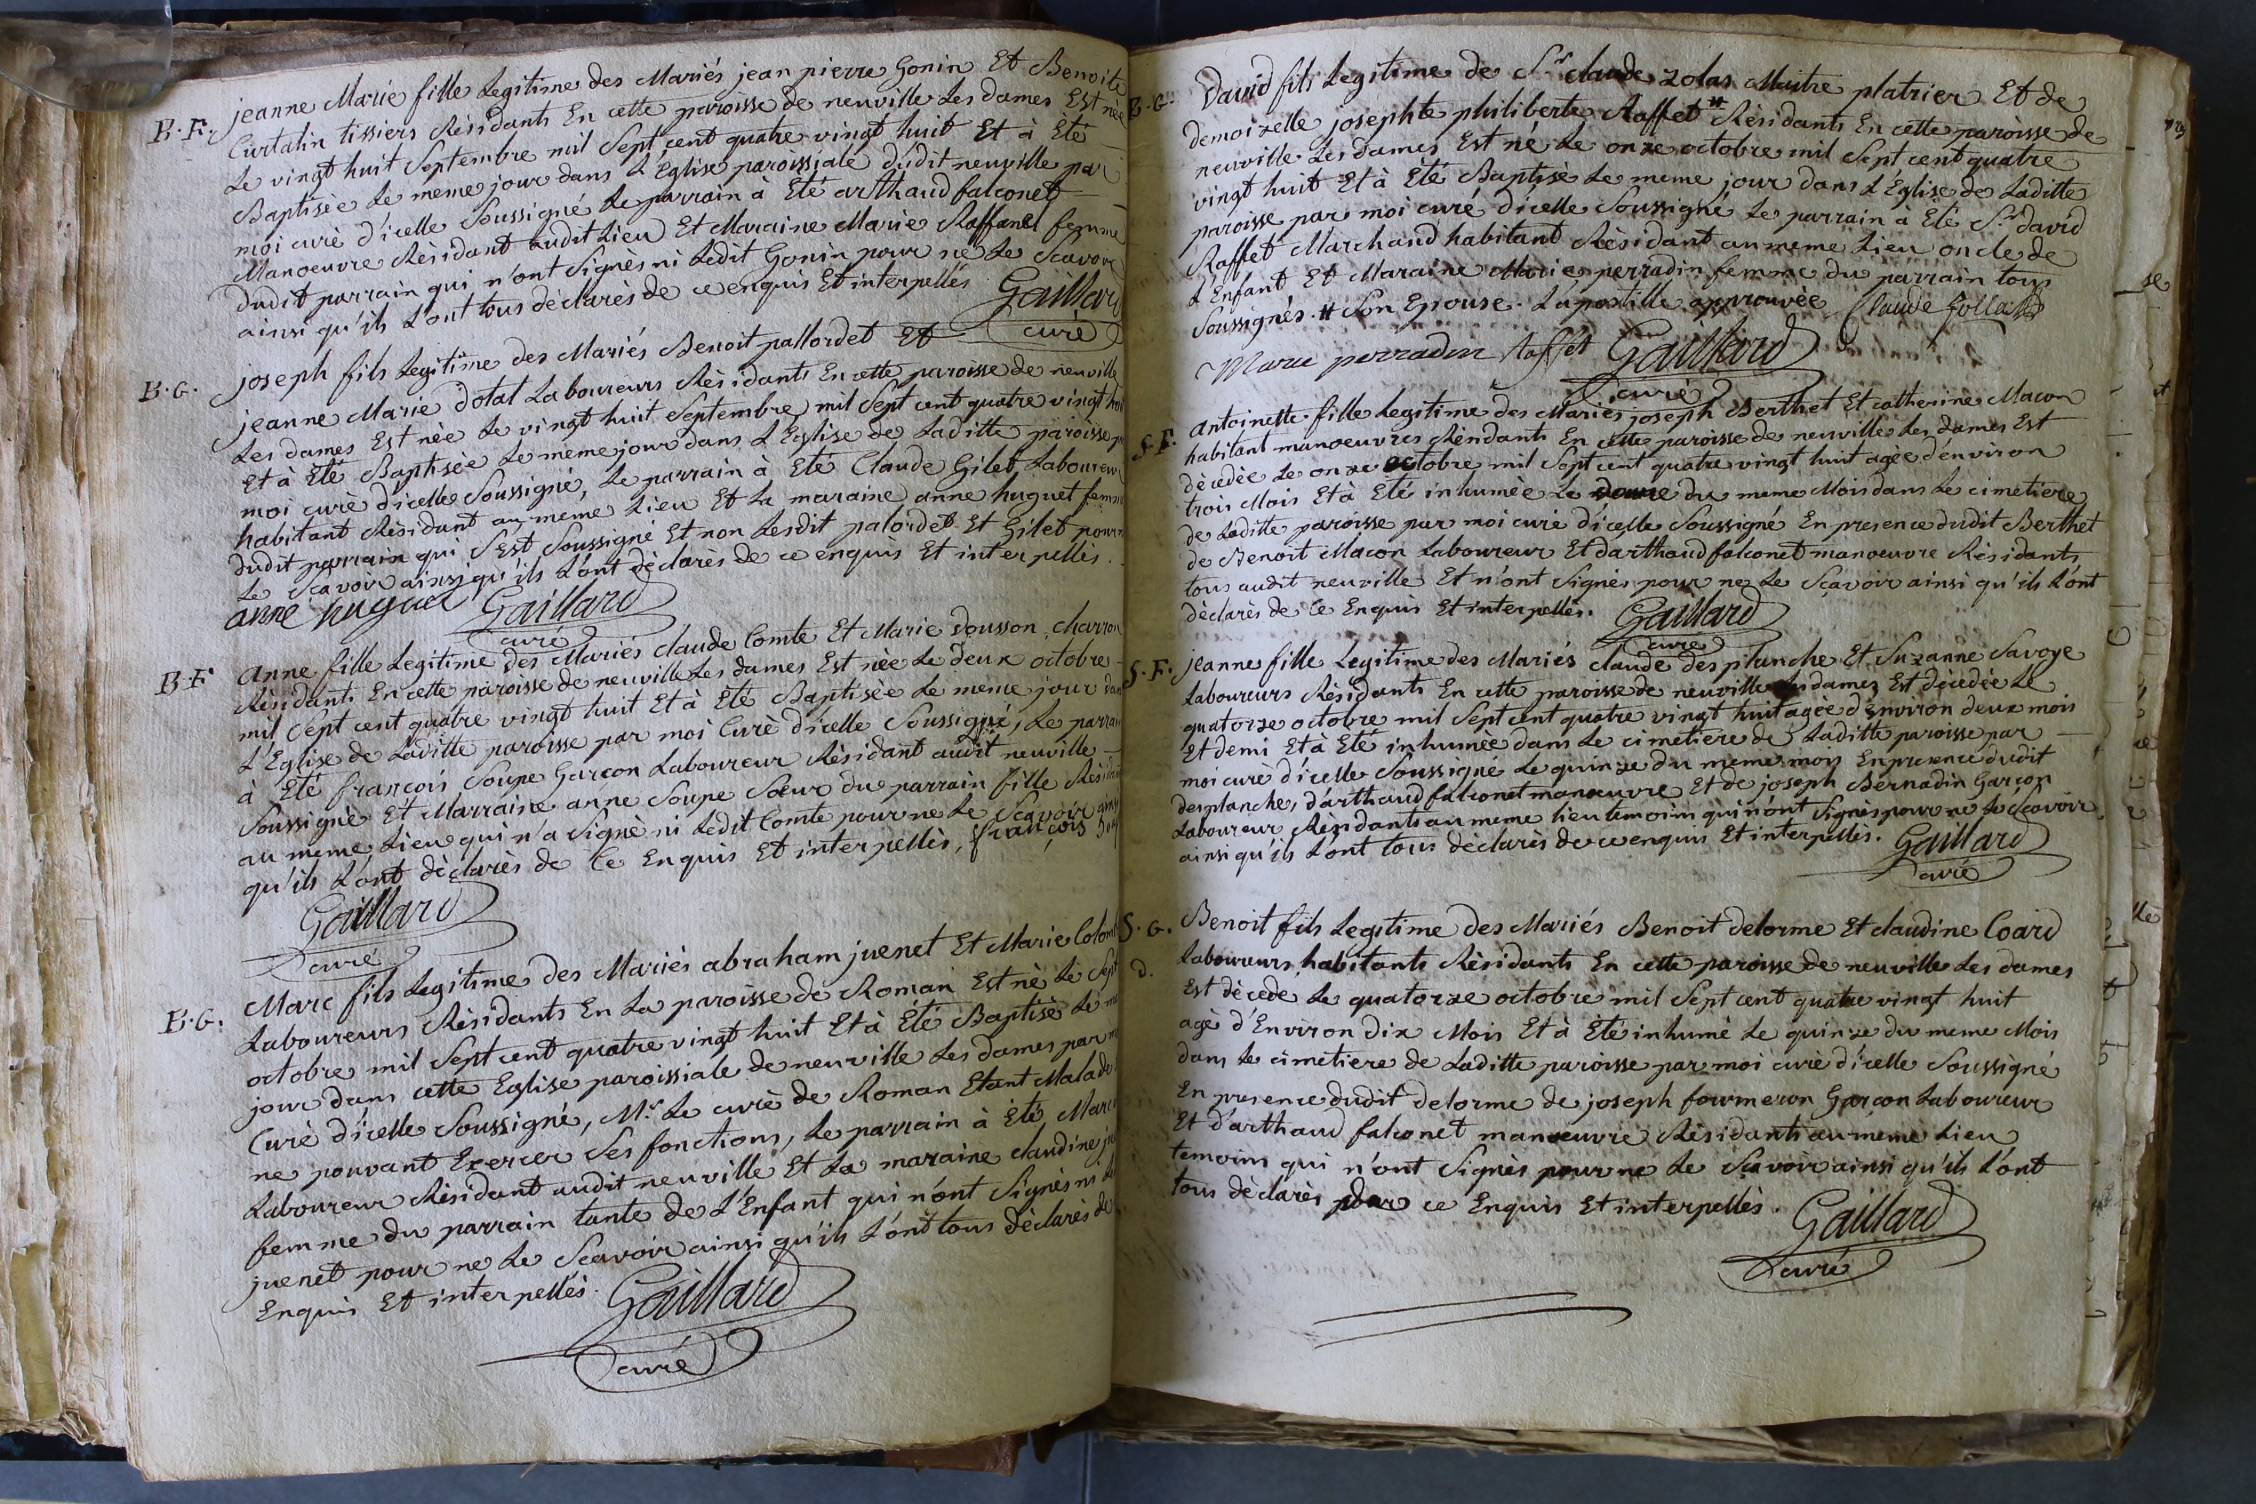 B. F. jeanne Marie fille Legitime des Mariés jean pierre Gonin Et Benoite
Curtalin tissiers Résidants En cette paroisse de neuville Les dames Est née
Le vingt huit Septembre mil Sept cent quatre vingt huit Et à Eté
Baptisèe Le meme jour dans L'Eglise paroissiale dudit neuville par
moi curé d'icelle Soussigné Le parrain à Eté arthaud falconet
Manoeuvre Résidant audit Lieu Et Maraine Marie Raffanel femme
dudit parrain qui n'ont Signès ni Ledit Gonin pour ne Le Scavoir
ainsi qu'ils L'ont tous déclarès de ce enquis Et interpellés. Gaillard
curé
B. G. joseph fils Legitime des Mariés Benoit pallordet Et
jeanne Marie dotal Laboureurs Résidants En cette paroisse de neuville
Les dames Est née Le vingt huit Septembre mil Sept cent quatre vingt huit
Et à Eté Baptisèe Le meme jour dans L'Eglise de Laditte paroisse par
moi curé d'icelle Soussigné, Le parrain à Eté Claude Gilet Laboureur
habitant Résidant au meme Lieu Et La maraine anne huguet femme
dudit parrain qui S'est Soussigné Et non Lesdit palordet Et Gilet pour ne
Le Scavoir ainsi qu'ils L'ont déclarès de ce enquis Et interpellés.
anne huguet Gaillard
curé
B. F. Anne fille Legitime des Mariés claude Comte Et Marie dousson charron
Résidants En cette paroisse de neuville Les dames Est née Le deux octobre
mil Sept cent quatre vingt huit Et à Eté Baptisèe Le meme jour dans
L'Eglise de Laditte paroisse par moi Curè d'icelle Soussigné, Le parrain
à Eté françois Soupe Garcon Laboureur Résidant audit neuville
Soussignè Et Marraine anne Soupe Soeur du parrain fille Résidant
au meme Lieu qui n'a Signè ni Ledit Comte pour ne Le Scavoir ainsi
qu'ils L'ont déclarès de Ce Enquis Et interpellès, françois Soup
Gaillard
curé
B. G. Marc fils Legitime des Mariés abraham juenet Et Marie Colomb
Laboureurs Résidants En La paroisse de Roman Est nè Le Sept
octobre mil Sept cent quatre vingt huit Et à Eté Baptisè Le meme
jour dans cette Eglise paroissiale de neuville Les dames par moi
Curè d'icelle Soussigné, Mr. Le curè de Roman Etant Malade
ne pouvant Exercer Ses fonctions, Le parrain à Eté Marc
Laboureur Résidant audit neuville Et La maraine claudine
femme du parrain tante de L'Enfant qui n'ont Signès ni
juenet pour ne Le Scavoir ainsi qu'ils L'ont tous dèclarès de
Enquis Et interpellés. Gaillard
curé
B. G. David fils Legitime de Sr. claude zolas Maitre platrier Et de
demoizelle josephte philiberte Raffet # Résidants En cette paroisse de
neuville Les dames Est né Le onze octobre mil Sept cent quatre
vingt huit Et à Eté Baptisè Le meme jour dans L'Eglise de Laditte
paroisse par moi curé d'icelle Soussigné Le parrain à Eté Sr. david
Raffet Marchand habitant Résidant au meme Lieu oncle de
L'Enfant Et Maraine Marie perradin femme du parrain tous
Soussignés. # Son Epouse. L'apostille approuvée Claude Zolla
Marie perradin Raffet Gaillard
curé
S. F. Antoinette fille Legitime des Mariés joseph Berthet Et catherine Macon
habitant manoeuvres Résidants En cette paroisse de neuville Les dames Est
décédée Le onze octobre mil Sept cent quatre vingt huit agèe d'environ
trois Mois Et à Eté inhumèe Le douze du meme Mois dans Le cimetiere
de Laditte paroisse par moi curé d'icelle Soussigné En presence dudit Berthet
de Benoit Macon Laboureur Et d'arthaud falconet manoeuvre Résidants
tous audit neuville Et n'ont Signès pour ne Le Scavoir ainsi qu'ils L'ont
dèclarès de Ce Enquis Et interpellès. Gaillard
curé
S. F. jeanne fille Legitime des Mariés claude desplanche Et Suzanne Savoye
Laboureurs Résidants En cette paroisse de neuville Les dames Est décedèe Le
quatorze octobre mil Sept cent quatre vingt huit agèe d'Environ deux mois
Et demi Et à Eté inhumèe dans Le cimetiere de Laditte paroisse par
moi curè d'icelle Soussigné Le quinze du meme mois En presence dudit
desplanche, d'arthaud falconet manoeuvre Et de joseph Bernadin Garçon
Laboureur Résidants au meme lieu temoins qui n'ont Signès pour ne Le Scavoir
ainsi qu'ils L'ont tous dèclarès de ce enquis Et interpellès. Gaillard
curé
S. G. Benoit fils Legitime des Mariés Benoit delorme Et claudine Coard
d. Laboureurs habitants Résidants En cette paroisse de neuville Les dames
Est dècede Le quatorze octobre mil Sept cent quatre vingt huit
agè d'Environ dix Mois Et à Eté inhumè Le quinze du meme Mois
dans Le cimetiere de Laditte paroisse par moi curè d'icelle Soussigné
En presence dudit delorme de joseph fourmeron Garçon Laboureur
Et d'arthaud falconet manoeuvre Résidants au meme Lieu
temoins qui n'ont Signès pour ne Le Scavoir ainsi qu'ils L'ont
tous dèclarès de ce Enquis Et interpellès. Gaillard
curé